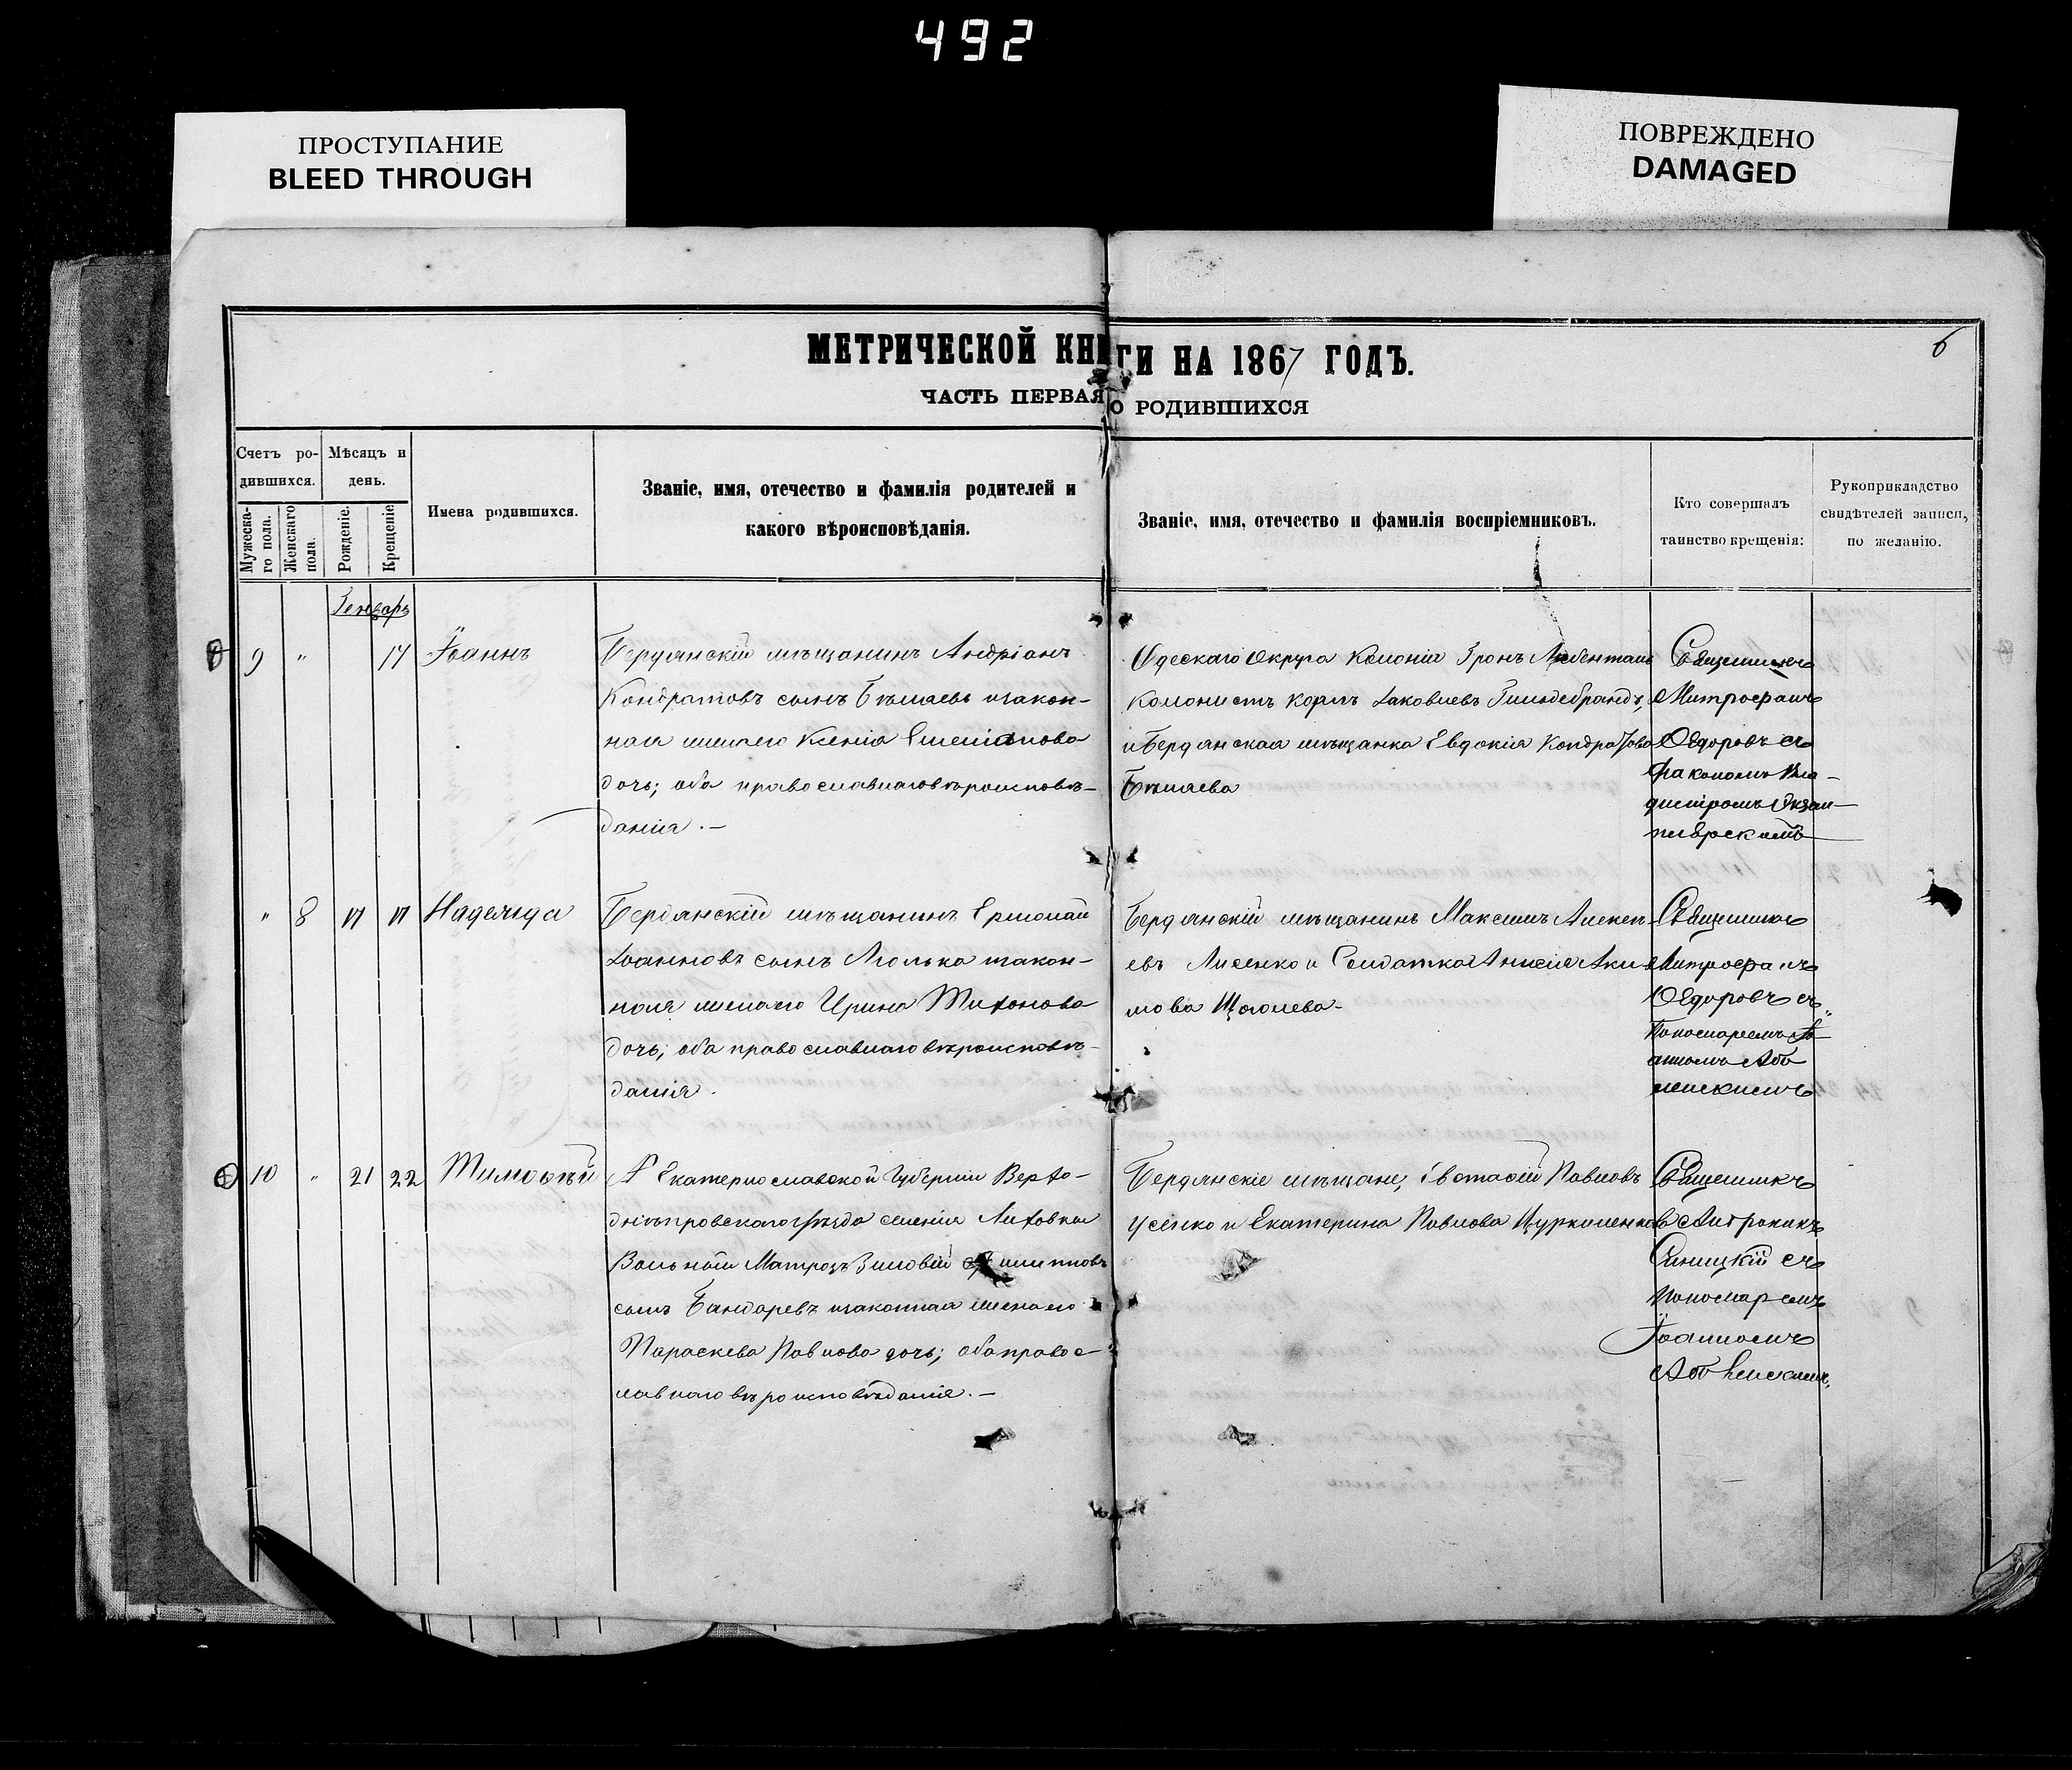 492
ПРОСТУПАНИЕ
BLEED THROUGH
ПОВРЕЖДЕНО
DAMAGED
6
МЕТРИЧЕСКОЙ КНИГИ НА 1867 ГОДЪ.
ЧАСТЬ ПЕРВАЯ О РОДИВШИХСЯ
Счетъ ро-
дившихся.
Мѣсяцъ и
день.
Мужеска-
го пола.
Женскаго
пола.
Рожденіе.
Крещеніе
Имена родившихся.
Званіе, имя, отечество и фамилія родителей и
какого вѣроисповѣданія.
Званіе, имя, отечество и фамилія воспріемниковъ.
Кто совершалъ
таинство крещенія:
Рукоприкладство
свидѣтелей записи,
по желанію.
Генварь
9 " 17 Іоаннъ
Бердянскій мѣщанинъ Андріанъ
Кондратовъ сынъ Бѣлаевъ изакон-
ная жена его Ксенія
дочь; оба православнаго вѣроисповѣ-
данія.—
Одескаго Округа Колоніи Гронъ Либенталь
колонистъ Карлъ Іаковлевъ Гильдебрандъ,
и Бердянская мѣщанка Евдокія Кондратова
Бѣлаева
Священникъ
Митрофанъ
Ѳедоровъ съ
діакономъ Вла-
диміромъ
" 8 17 17 Надежда
Бердянскій мѣщанинъ Ермолай
Іоанновъ сынъ Люлька изакон-
ная жена его Ирина Тихонова
дочь; оба православнаго вѣроисповѣ-
данія.
Бердянскій мѣщанинъ Максимъ Алексе-
евъ Лисенко и Солдатка Анисія Аки-
мова Щоголева.
Священникъ
Митрофанъ
Ѳедоровъ съ
Пономаремъ Іо-
анномъ
10 " 21 22 Тимоѳѣй
Екатеринославской Губерніи Верхо-
днѣпровскаго уѣзда селенія Лиховки
Вольный Матрозъ Зиновій
сынъ Бандаревъ изаконная жена его
Параскева Павлова дочь; оба правос-
лавнаго вѣроисповѣданія.—
Бердянскіе мѣщане, Евстафій Павловъ
Усенко и Екатерина Павлова
Священникъ
Синицкій съ
Пономаремъ
Іоанномъ